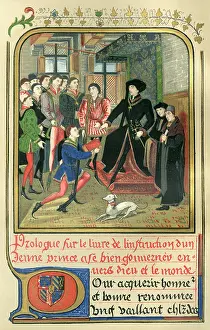 Prologue sur le livre de linstruction dun
Jeune prince a se bien gouuerner en
uers dieu et le monde
Our acquerir honne
et bonne renommee
ung vaillant